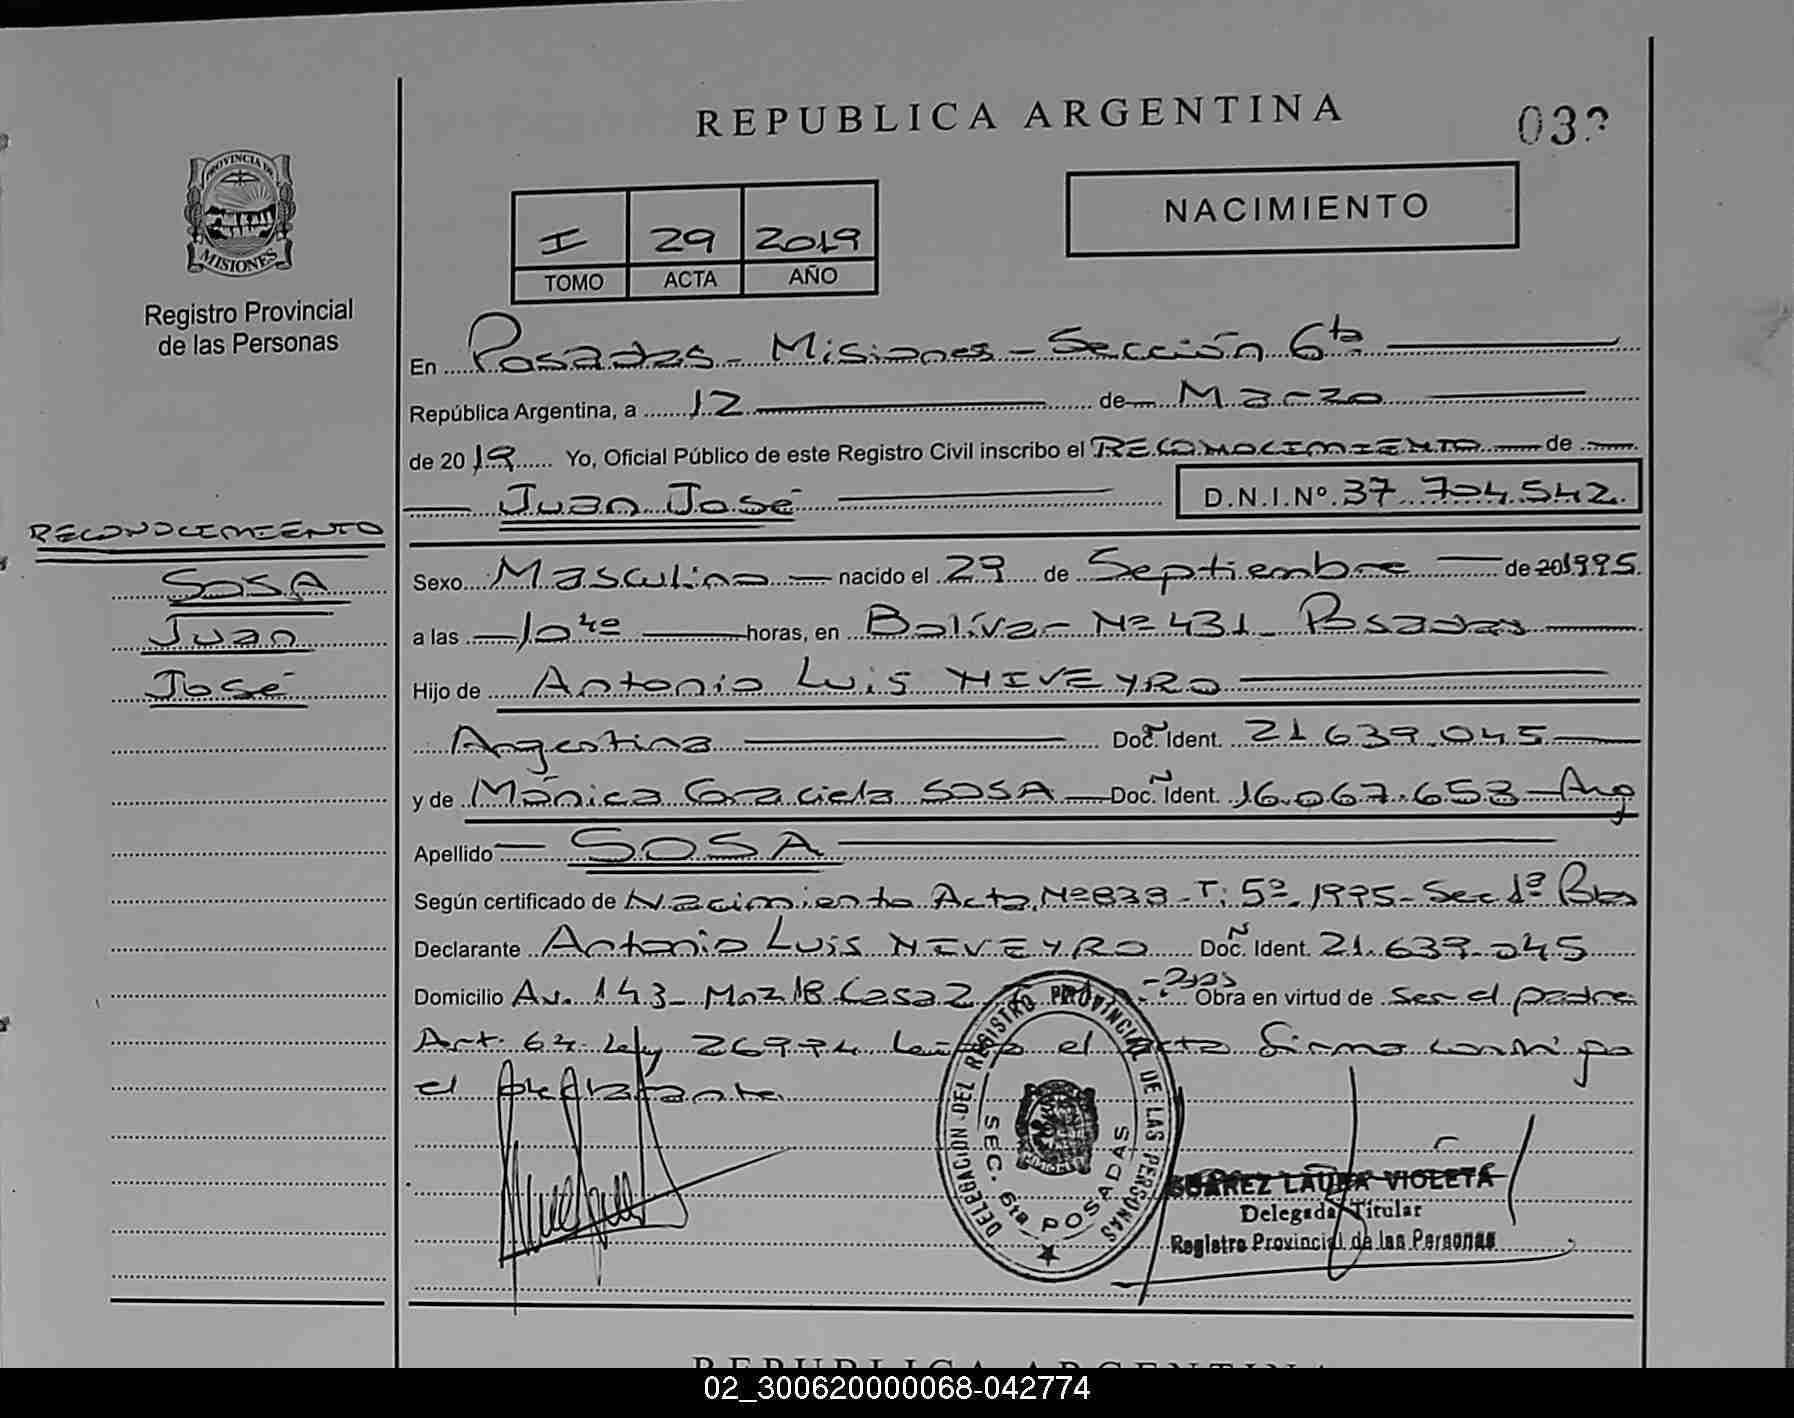 REPUBLICA ARGENTINA
03
PROVINCIA DE
MISIONES
Registro Provincial
de las Personas
NACIMIENTO
I 29 2019
TOMO ACTA AÑO
En Posadas - Misiones - Sección 6ta
República Argentina, a 12 de Marzo
de 2019 Yo, Oficial Público de este Registro Civil inscribo el RECONOCIMIENTO de
Juan José D.N.I.Nº 37.704.542.
RECONOCIMIENTO
SOSA
Juan
José
Sexo Masculino nacido el 29 de Septiembre de 201995.
a las 10 40 horas, en Bolívar Nº 431 Posadas
Hijo de Antonio Luis NIVEYRO
Argentina Doc. Ident. 21.639.045
y de Mónica Graciela SOSA Doc. Ident. 16.067.653 - Arg
Apellido SOSA
Según certificado de Nacimiento Acta Nº 839 - T: 5º - 1995 - Sec 1ª Pdas
Declarante Antonio Luis NIVEYRO Doc. Ident. 21.639.045
Domicilio Av. 143 - Mz 18 Casa 2 Obra en virtud de ser el padre
Art. 64 Ley 26994 el acta firma conmigo
el
DELEGACION DEL REGISTRO PROVINCIAL DE LAS PERSONAS
SEC. 6ta POSADAS
SUAREZ LAURA VIOLETA
Delegada Titular
Registro Provincial de las Personas
REPUBLICA ARGENTINA
02_300620000068-042774